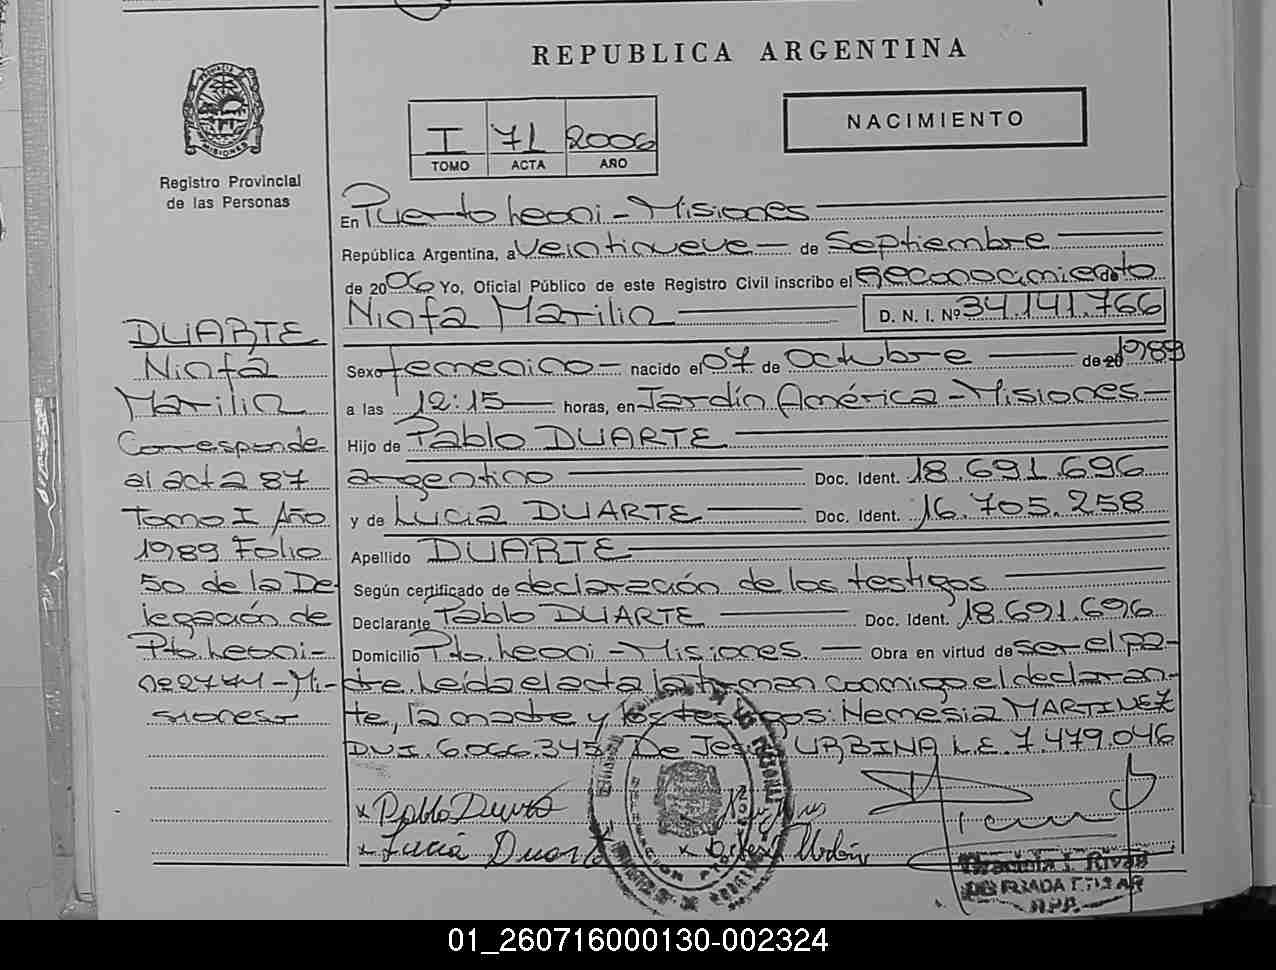 REPUBLICA ARGENTINA
PROVINCIA DE MISIONES
Registro Provincial
de las Personas
I 71 2006
TOMO ACTA AÑO
NACIMIENTO
DUARTE
Ninfa
Marilin
Corresponde
al acta 87
Tomo I Año
1989 Folio
50 de la De-
legación de
Pto. Leoni-
nº2771-Mi-
siones-
En Puerto Leoni - Misiones
República Argentina, a veintinueve de Septiembre
de 2006 Yo, Oficial Público de este Registro Civil inscribo el Reconocimiento de
Ninfa Marilin D. N. I. Nº 34.141.766
Sexo femenino nacido el 07 de Octubre de 20 1989
a las 12:15 horas, en Jardín América - Misiones -
Hijo de Pablo DUARTE
argentino Doc. Ident. 18.691.696
y de Lucia DUARTE Doc. Ident. 16.705.258
Apellido DUARTE
Según certificado de declaración de los testigos
Declarante Pablo DUARTE Doc. Ident. 18.691.696
Domicilio Pto. Leoni - Misiones. Obra en virtud de ser el pa-
dre. Leída el acta la firman conmigo el declaran-
te, la madre y los testigos: Nemesia MARTINEZ
DNI. 6.066.345 De Jesús URBINA L.E. 7.479.046
x Pablo Duarte
x Lucia Duarte x
Rivas
01_260716000130-002324